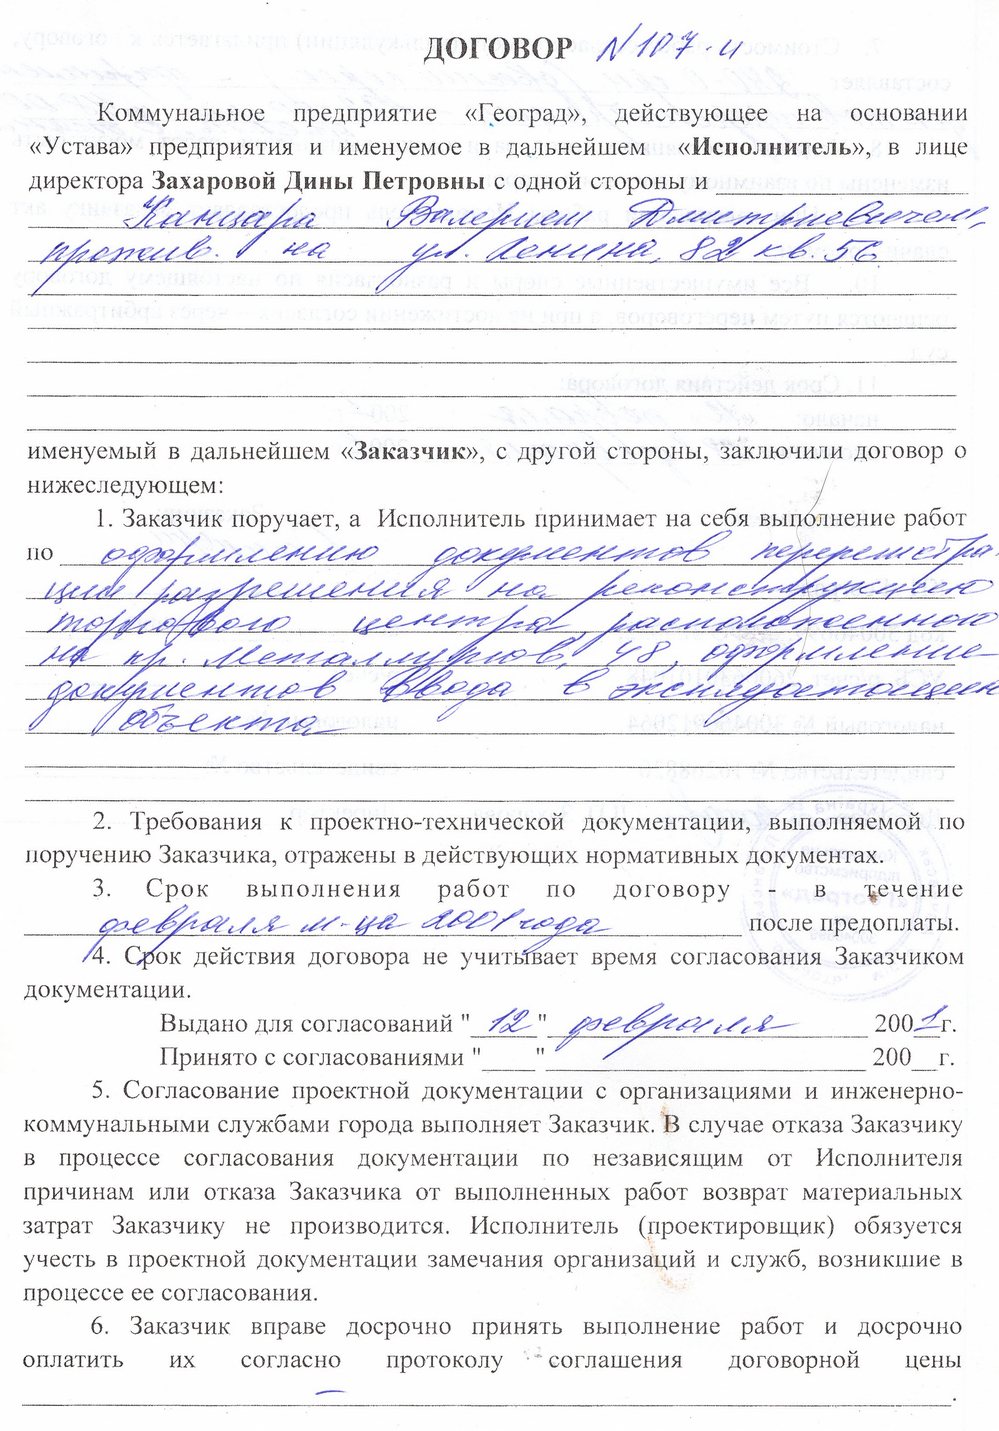 ДОГОВОР N 107-и
Коммунальное предприятие «Геоград», действующее на основании
«Устава» предприятия и именуемое в дальнейшем «Исполнитель», в лице
директора Захаровой Дины Петровны с одной стороны и
Канцара Валерием Дмитриевичем,
прожив. на ул. Ленина, 82 кв. 56
именуемый в дальнейшем «Заказчик», с другой стороны, заключили договор о
нижеследующем:
1. Заказчик поручает, а Исполнитель принимает на себя выполнение работ
по оформлению документов перерегистра-
ции разрешения на реконструкцию
торгового центра, расположенного
на пр. Металлургов, 48, оформление
документов ввода в эксплуатацию
объекта
2. Требования к проектно-технической документации, выполняемой по
поручению Заказчика, отражены в действующих нормативных документах.
3. Срок выполнения работ по договору - в течение
февраля м-ца 2001 года после предоплаты.
4. Срок действия договора не учитывает время согласования Заказчиком
документации.
Выдано для согласований "12" февраля 2001г.
Принято с согласованиями "____" ____ 200__г.
5. Согласование проектной документации с организациями и инженерно-
коммунальными службами города выполняет Заказчик. В случае отказа Заказчику
в процессе согласования документации по независящим от Исполнителя
причинам или отказа Заказчика от выполненных работ возврат материальных
затрат Заказчику не производится. Исполнитель (проектировщик) обязуется
учесть в проектной документации замечания организаций и служб, возникшие в
процессе ее согласования.
6. Заказчик вправе досрочно принять выполнение работ и досрочно
оплатить их согласно протоколу соглашения договорной цены
–.